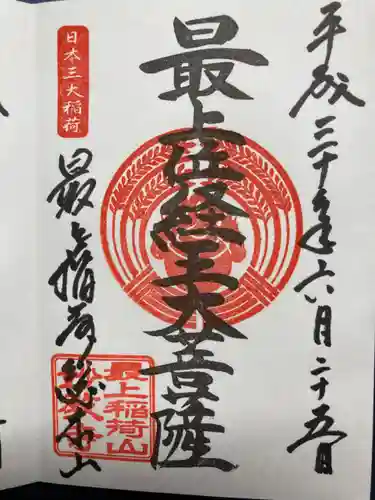 平成三十年六月二十五日
最上位経王大菩薩
日本三大稲荷
最上稲荷総本山
最上稲荷山